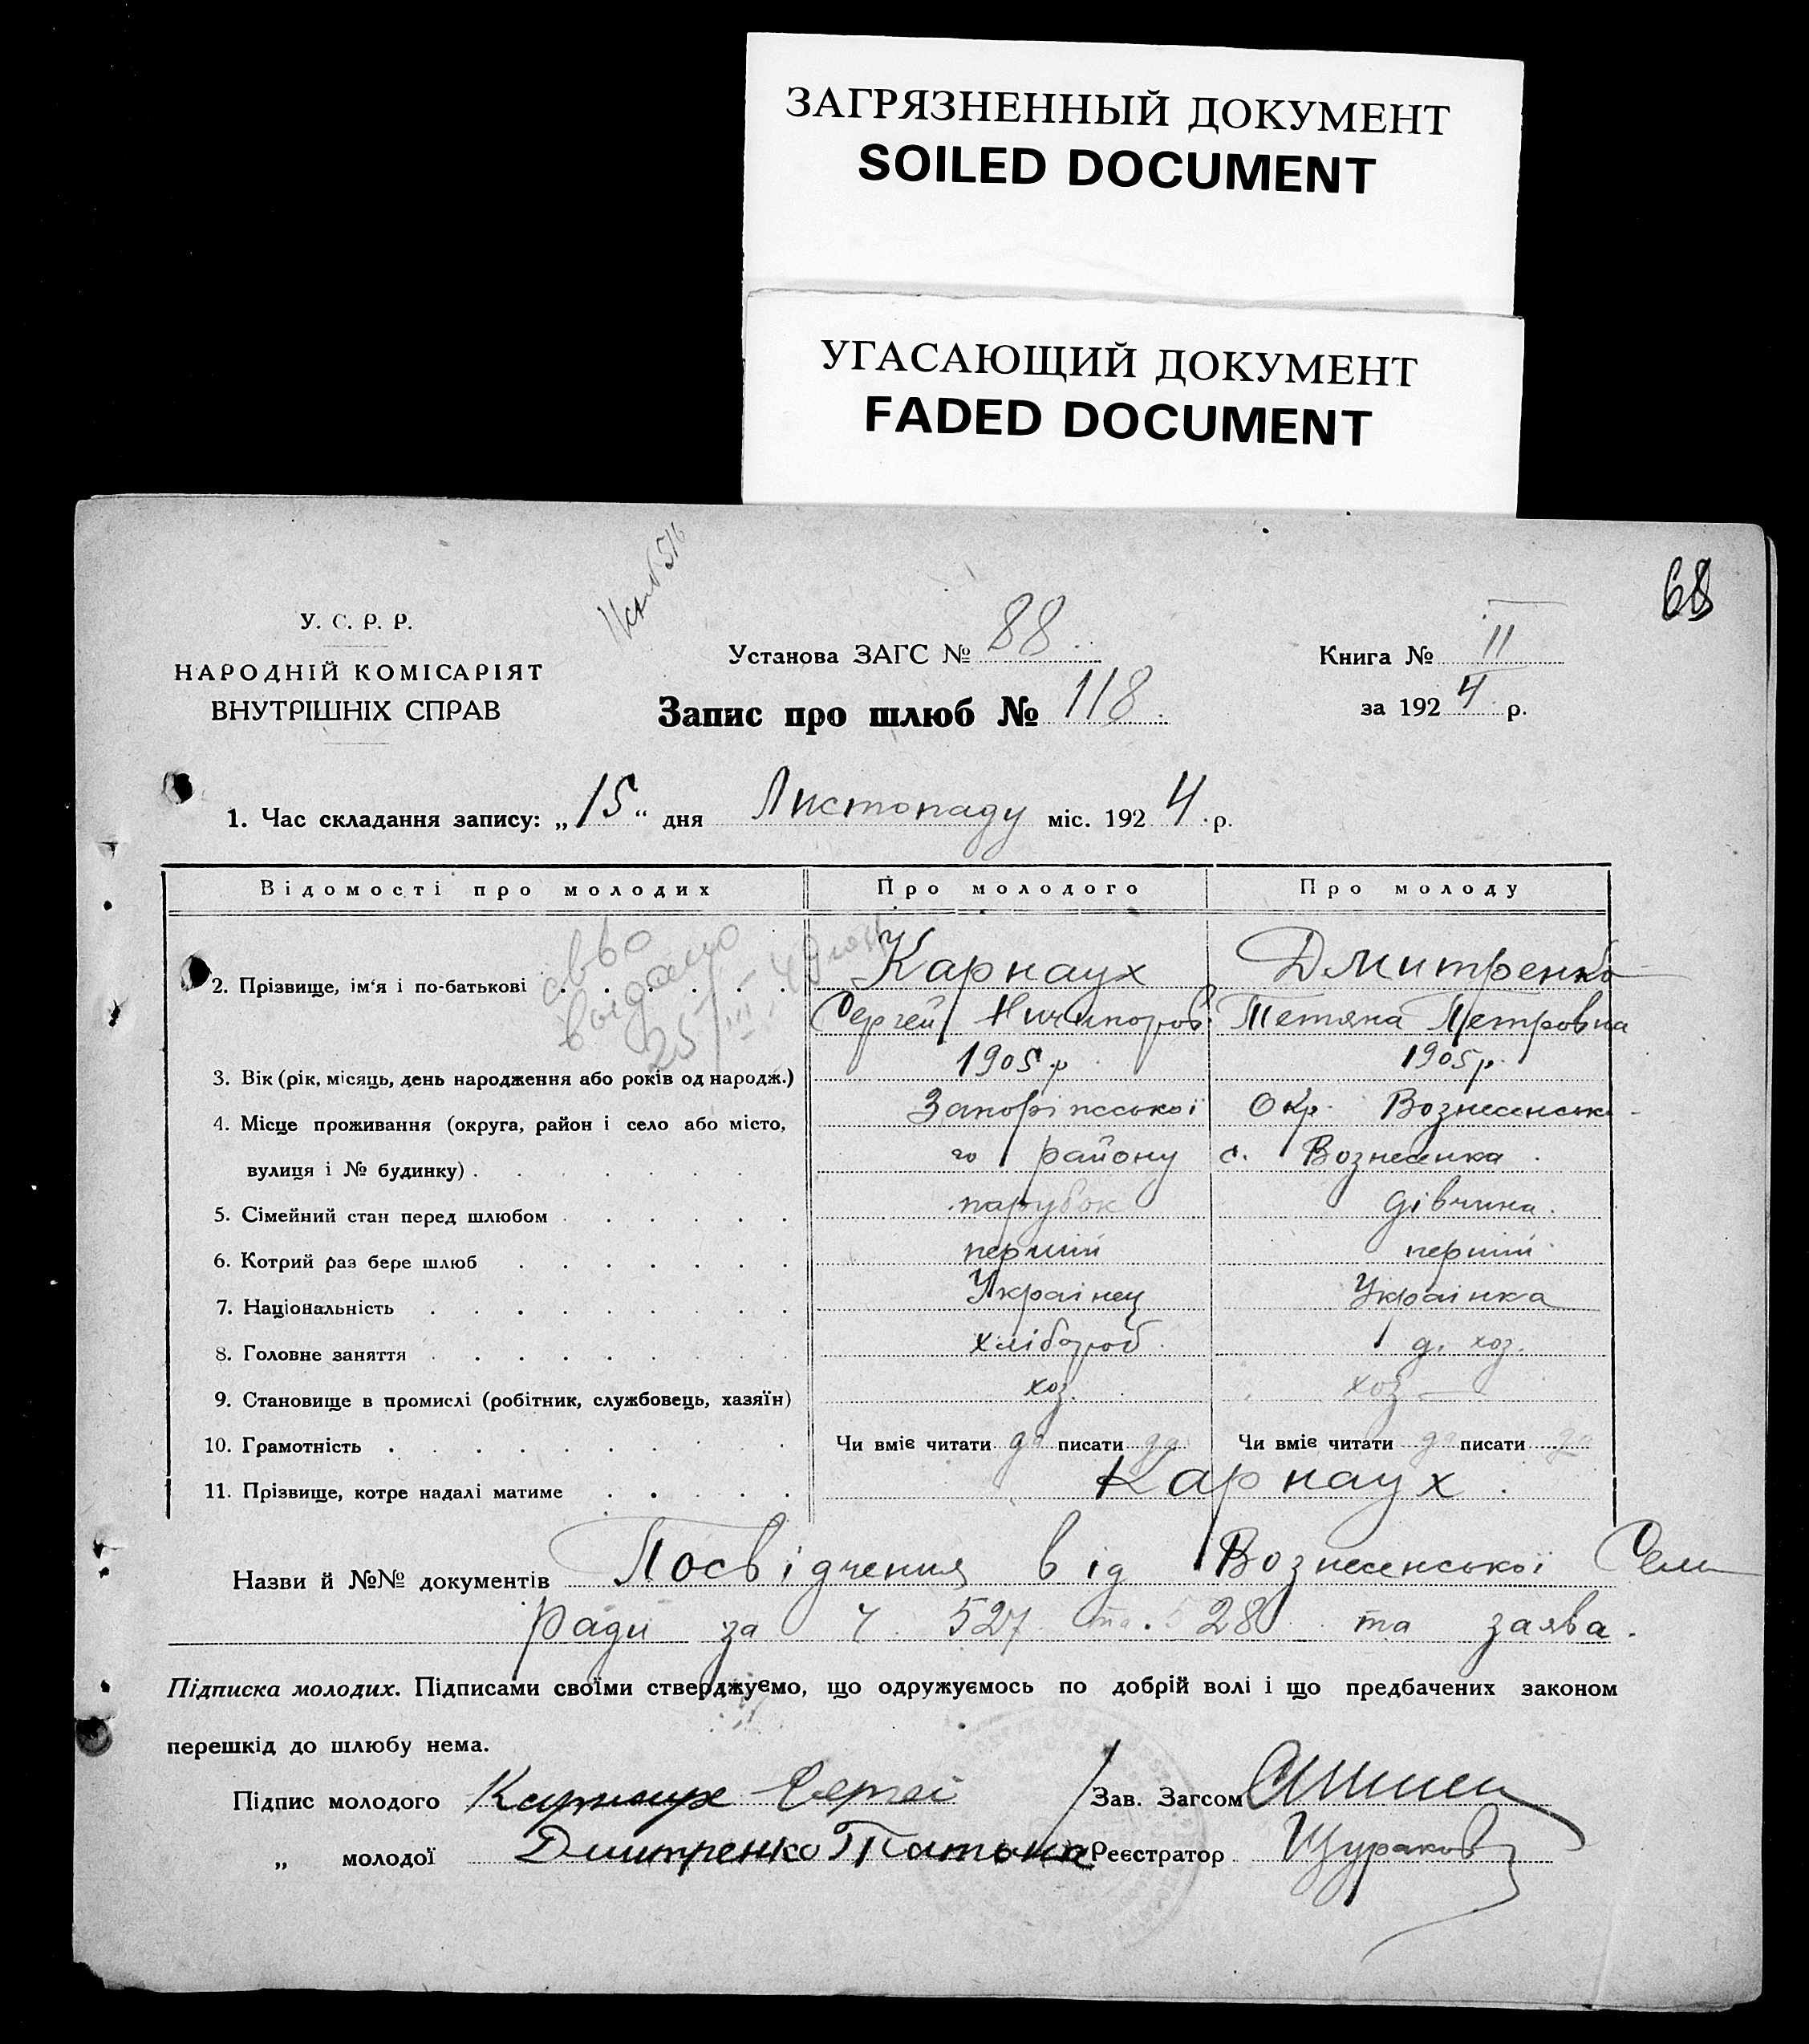 ЗАГРЯЗНЕННЫЙ ДОКУМЕНТ
SOILED DOCUMENT
УГАСАЮЩИЙ ДОКУМЕНТ
FADED DOCUMENT
68
У. С. Р. Р.
НАРОДНІЙ КОМІСАРІЯТ
ВНУТРІШНІХ СПРАВ
Установа ЗАГС № 88.
Запис про шлюб № 118
Книга № II
за 1924 р.
1. Час складання запису: „15“ дня Листопаду міс. 1924 р.
Відомості про молодих Про молодого Про молоду
2. Прізвище, ім'я і по-батькові Карнаух Дмитренко
Сергей Ничипоров. Тетяна Петровна
выдано
25/III
3. Вік (рік, місяць, день народження або років од народж.) 1905 р 1905 р.
4. Місце проживання (округа, район і село або місто, Запоріжської Окр. Вознесенсько-
вулиця і № будинку) го району с. Вознесенка.
5. Сімейний стан перед шлюбом парубок дівчина.
6. Котрий раз бере шлюб перший перший
7. Національність Українец Українка
8. Головне заняття хлібороб. д. хоз.
9. Становище в промислі (робітник, службовець, хазяїн) хоз. хоз —
10. Грамотність Чи вміє читати да писати да Чи вміє читати да писати да
11. Прізвище, котре надалі матиме Карнаух.
Назви й №№ документів Посвідчення від Вознесенської Сель
Ради за ч. 527 та. 528 та заява.
Підписка молодих. Підписами своїми стверджуємо, що одружуємось по добрій волі і що предбачених законом
перешкід до шлюбу нема.
Підпис молодого Карнаух Сергеі Зав. Загсом
„ молодої Дмитренко Татьяна Реєстратор Щураков